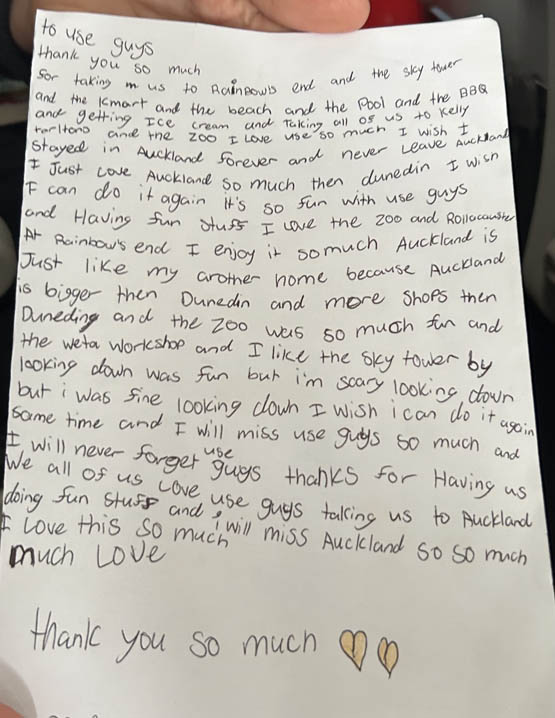 to use guys
thank you so much
for taking m us to Rainbows end and the sky tower
and the Kmart and the beach and the Pool and the BBQ
and getting Ice cream and Taking all of us to Kelly
tarltons and the zoo I Love use so much I wish I
Stayed in Auckland forever and never Leave Auckland
I Just Love Auckland so much then dunedin I wish
I can do it again it's so fun with use guys
and Having fun stuff I Love the zoo and Rollacouster
At Rainbow's end I enjoy it so much Auckland is
Just like my arother home because Auckland
is bigger then Dunedin and more Shops then
Duneding and the zoo was so much fun and
the weta workshop and I like the sky tower by
looking down was fun but i'm scary looking down
but i was fine looking down I wish i can do it again
some time and I will miss use guys so much and
I will never forget use guys thanks for Having us
We all of us Love use guys taking us to Auckland
doing fun stuff and i will miss Auckland so so much
I Love this so much
much Love
thank you so much